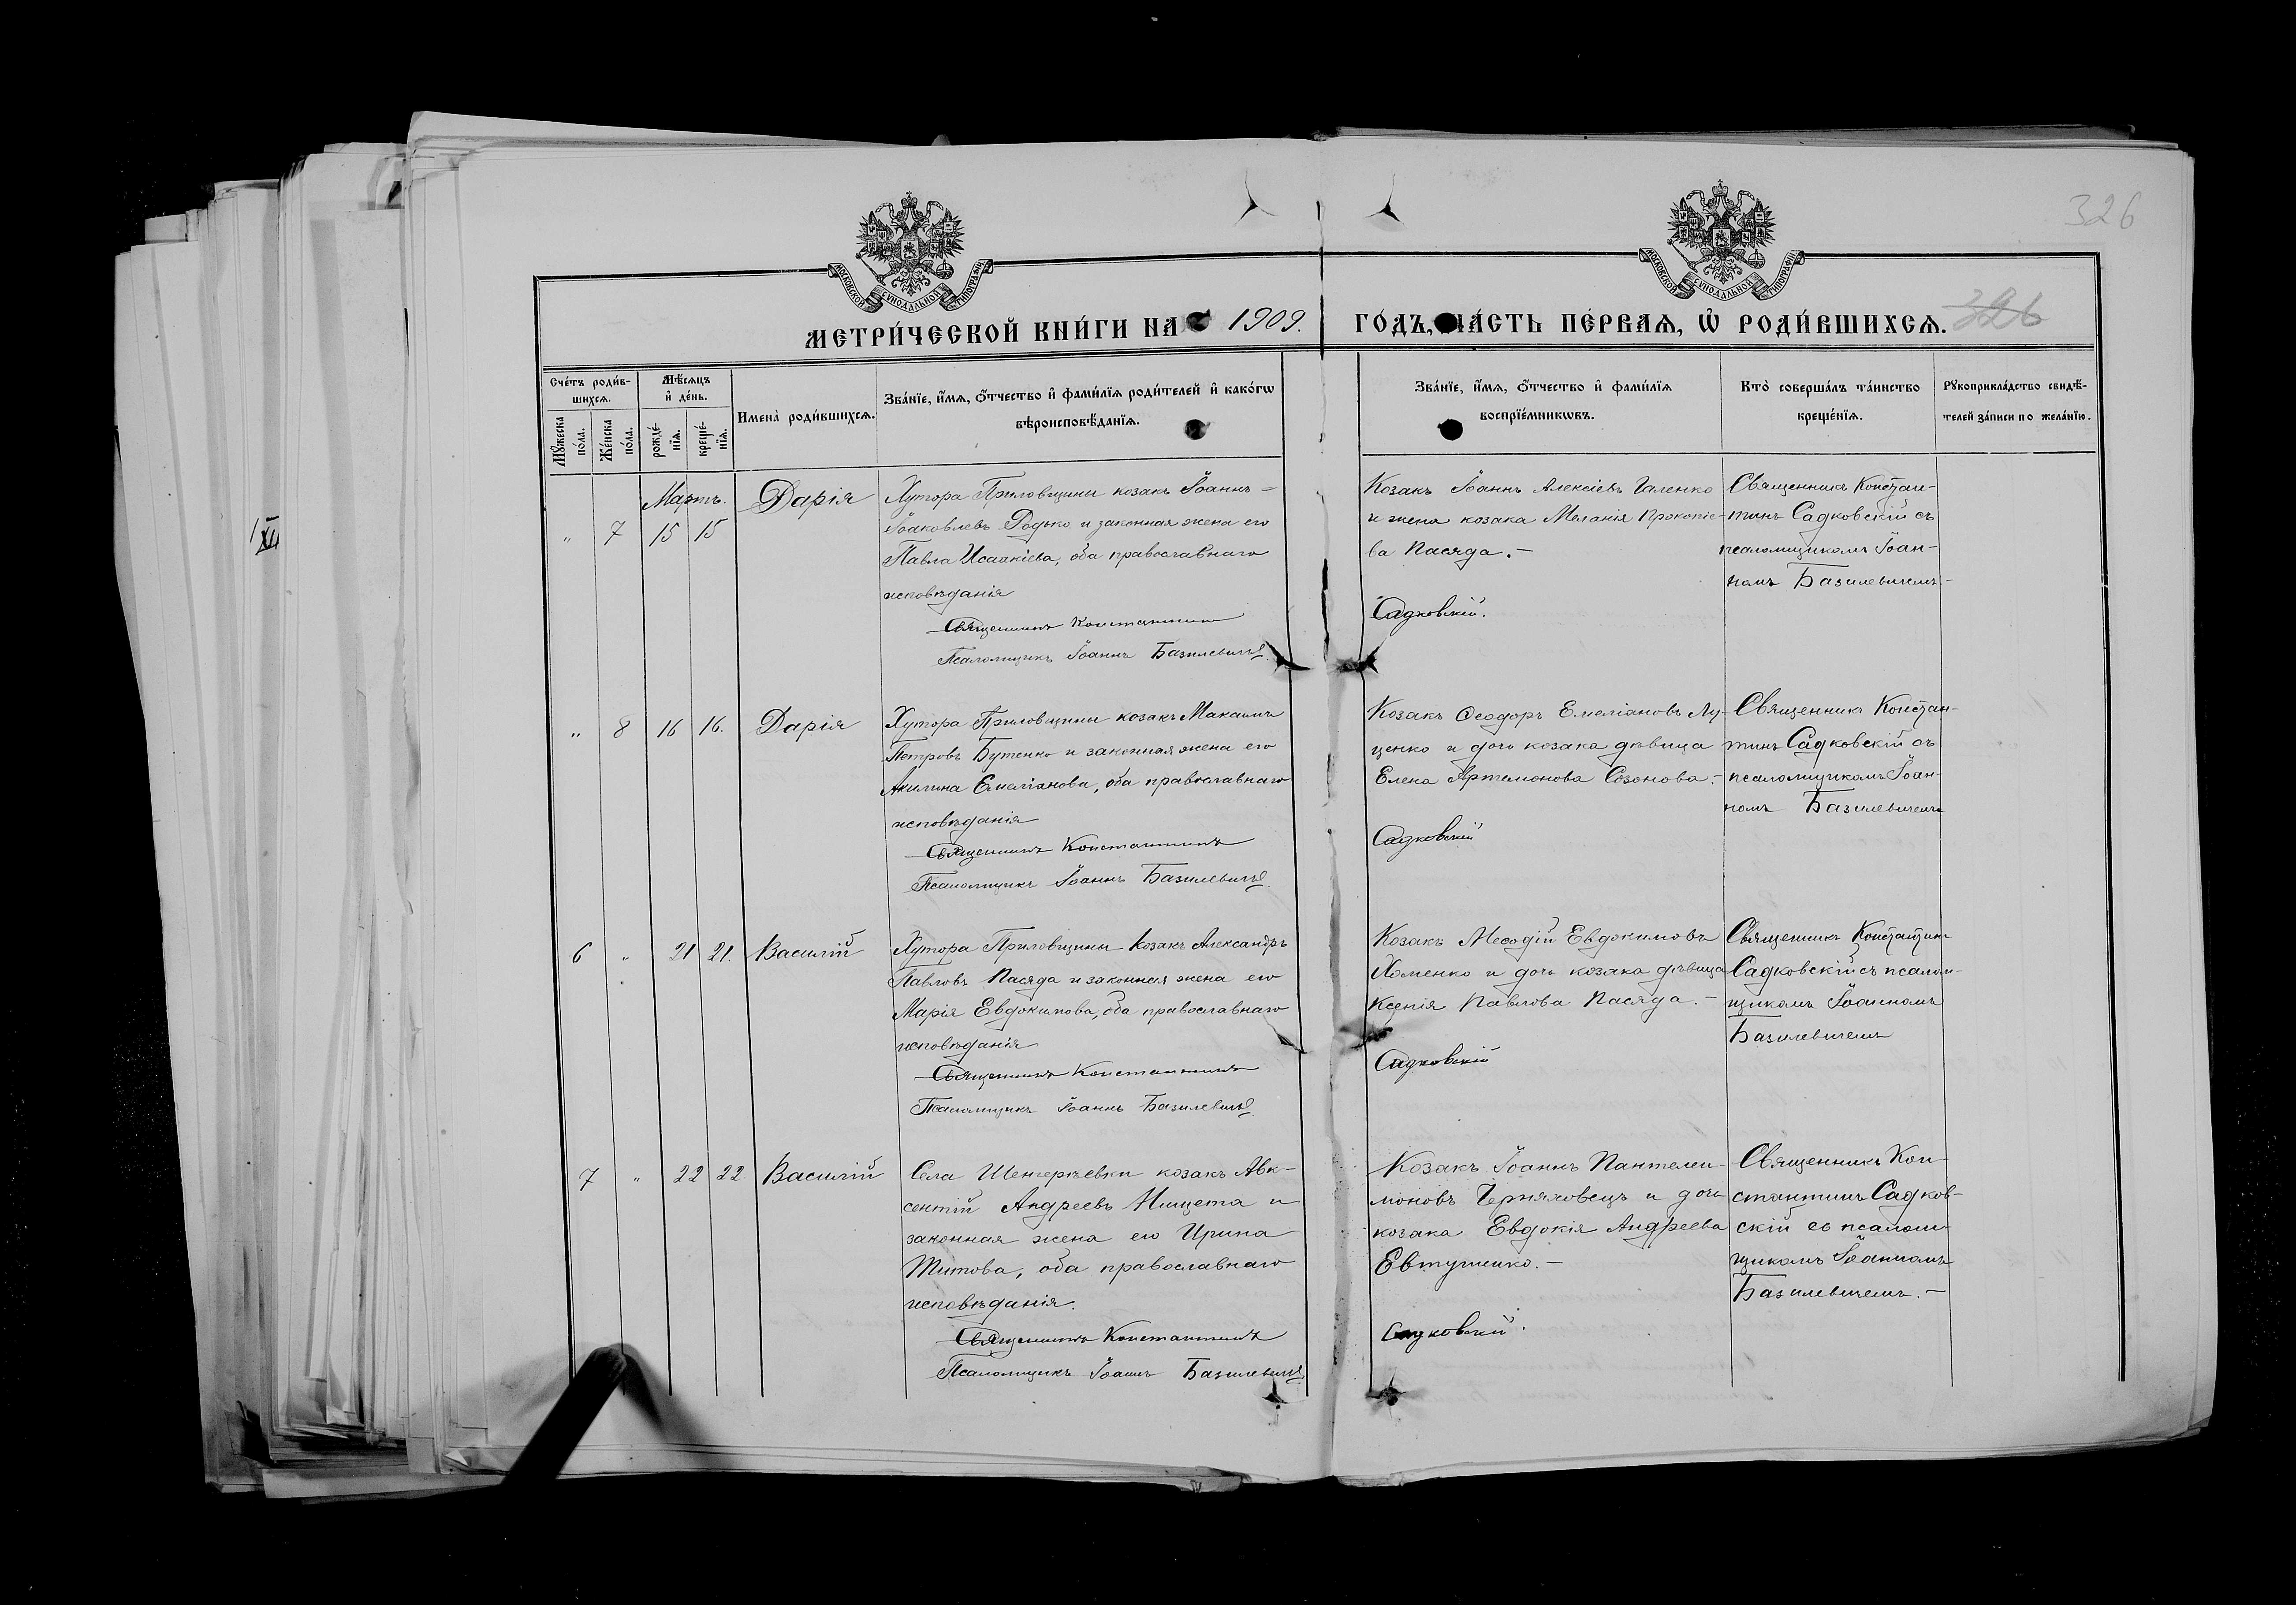 326
МОСКОВСКОЙ СУНОДАЛЬНОЙ ТИПОГРАФІИ
МОСКОВСКОЙ СУНОДАЛЬНОЙ ТИПОГРАФІИ
МЕТРИ́ЧЕСКОЙ КНИ́ГИ НА 1909.
ГО́ДЪ, ЧА́СТЬ ПЕ́РВАѦ, Ѡ҆ РОДИ́ВШИХСѦ. 326
Сче́тъ роди́в-
шихсѧ.
Мꙋ́жеска
по́ла.
Же́нска
по́ла.
Мѣ́сѧцъ
и҆ де́нь.
рожде́-
нїѧ.
креще́-
нїѧ.
Имена̀ роди́вшихсѧ.
Зва́нїе, и҆́мѧ, ѻ҆́тчество и҆ фами́лїѧ роди́телей и҆ како́гѡ
вѣроисповѣ́данїѧ.
Зва́нїе, и҆́мѧ, ѻ҆́тчество и҆ фами́лїѧ
воспрїе́мникѡвъ.
Кто̀ соверша́лъ та́инство
креще́нїѧ.
Рꙋкоприкла́дство свидѣ́-
телей за́писи по жела́нїю.
Мартъ.
„ 7 15 15
Дарія
Хутора Приловщины козакъ Іоаннъ –
Іаковлевъ Родько и законная жена его
Павла Исаакіева, оба православнаго
исповѣданія
Священникъ Константинъ
Псаломщикъ Іоаннъ Базилевичъ
Козакъ Іоаннъ Алексіевъ Галенко
и жена козака Меланія Прокопіе-
ва Пасяда. –
Садковскій.
Священникъ Констан-
тинъ Садковскій съ
псаломщикомъ Іоан-
номъ Базилевичемъ –
„ 8 16 16.
Дарія
Хутора Приловщины козакъ Максимъ
Петровъ Бутенко и законная жена его
Акилина Емеліанова, оба православнаго
исповѣданія
Священникъ Константинъ
Псаломщикъ Іоаннъ Базилевичъ
Козакъ Ѳеодоръ Емеліановъ Лу-
ценко и дочь козака дѣвица
Елена Артемонова Созонова. –
Садковскій
Священникъ Констан-
тинъ Садковскій съ
псаломщикомъ Іоан-
номъ Базилевичемъ
6 „ 21 21.
Василій
Хутора Приловщины козакъ Александръ
Павловъ Пасяда и законная жена его
Марія Евдокимова, оба православнаго
исповѣданія
Священникъ Константинъ
Псаломщикъ Іоаннъ Базилевичъ
Козакъ Меѳодій Евдокимовъ
Хоменко и дочь козака дѣвица
Ксенія Павлова Пасяда. –
Садковскій
Священникъ Константинъ
Садковскій съ псалом-
щикомъ Іоанномъ
Базилевичемъ
7 „ 22 22
Василій
Села Шенгерѣевки козакъ Авк-
сентій Андреевъ Нищета и
законная жена его Ирина
Титова, оба православнаго
исповѣданія.
Священникъ Константинъ
Псаломщикъ Іоаннъ Базилевичъ
Козакъ Іоаннъ Пантелеи-
моновъ Черняховецъ и дочь
козака Евдокія Андреева
Евтушенко. –
Садковскій.
Священникъ Кон-
стантинъ Садков-
скій съ псалом-
щикомъ Іоанномъ
Базилевичемъ. –